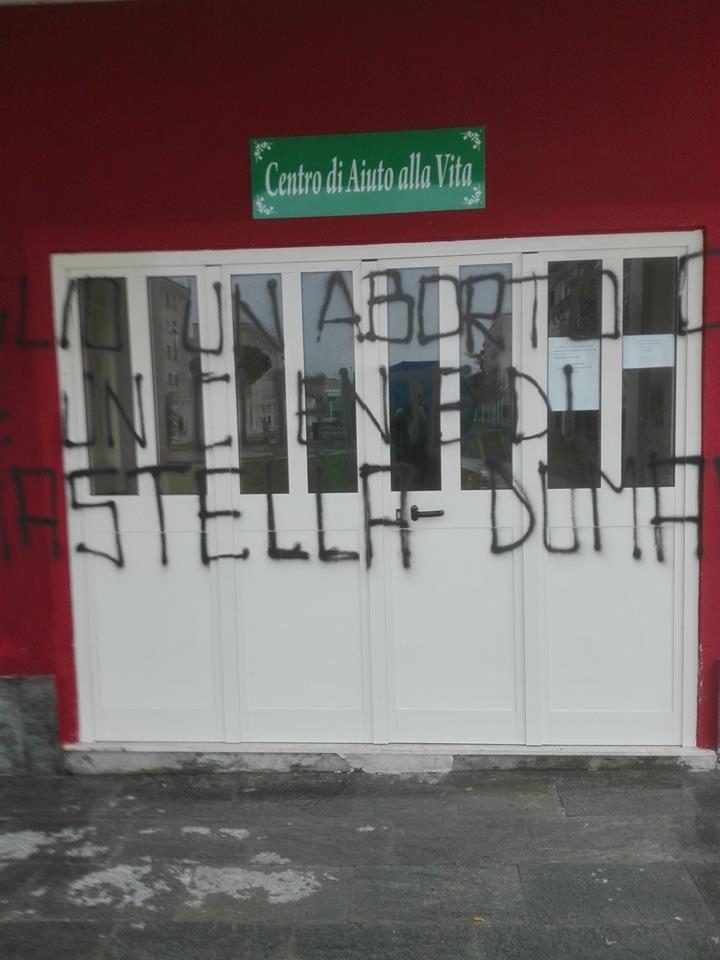 Centro di Aiuto alla Vita
GLIO UN ABORTO C
E UN DI
MASTELLA DUMA